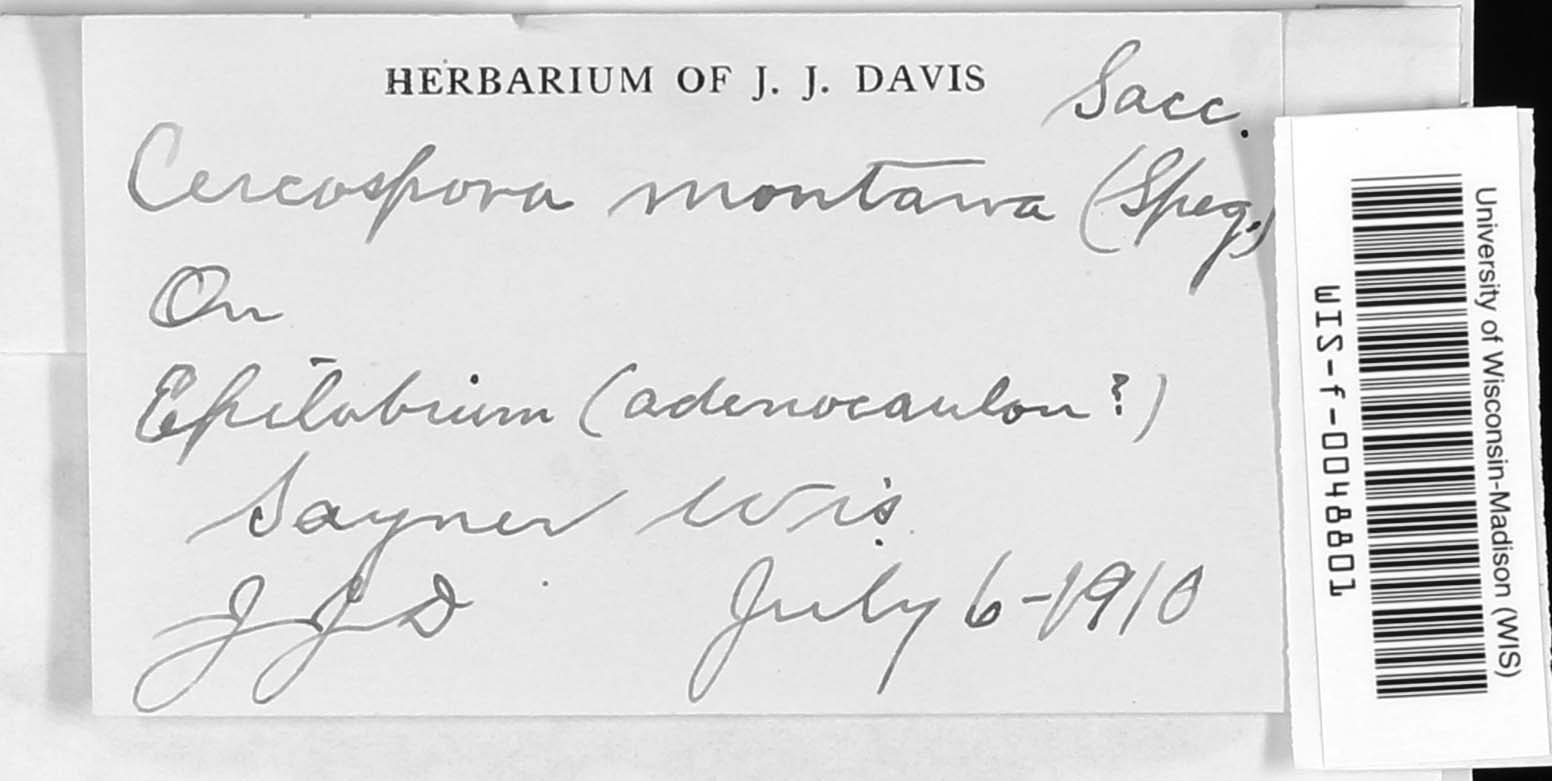 HERBARIUM OF J. J. DAVIS
Sacc.
Cercospora montana (Speg.)
On
Epilobium (adenocaulon?)
Sayner Wis.
JJD July 6-1910
University of Wisconsin-Madison (WIS)
WIS-f-0048801